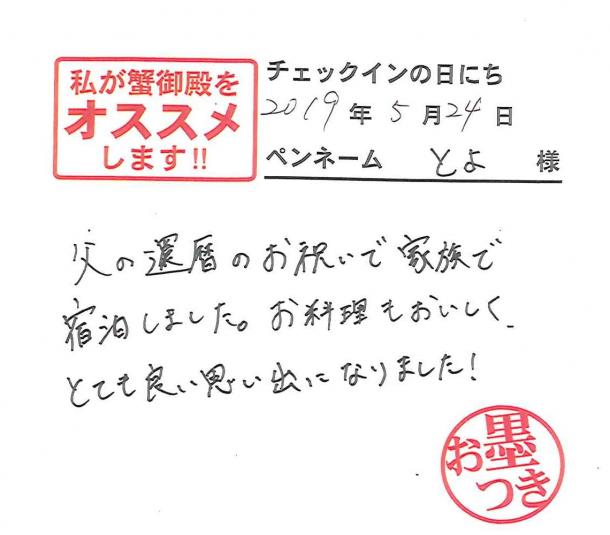 私が蟹御殿を
オススメ
します!!
チェックインの日にち
2019年5月24日
ペンネーム とよ 様
父の還暦のお祝いで家族で
宿泊しました。お料理もおいしく、
とても良い思い出になりました!
お墨
つき